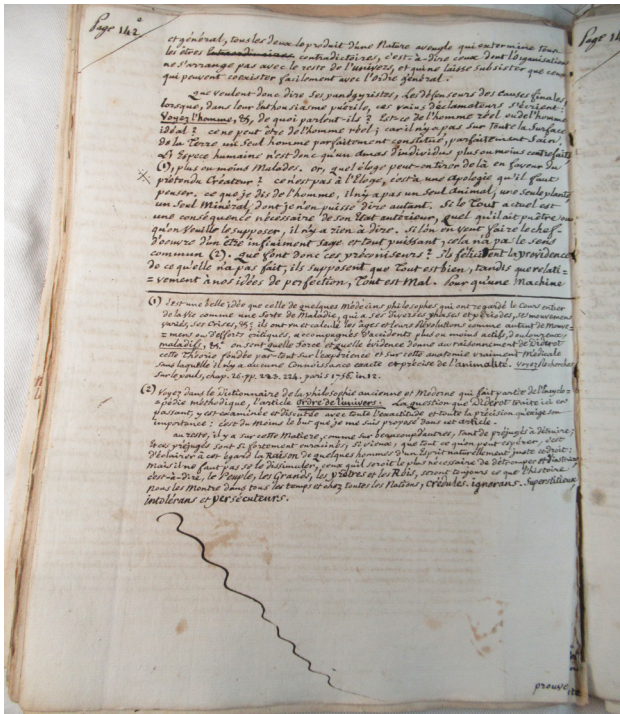 Page 142.
Page 14
et général, tous les deux le produit d'une Nature aveugle qui extermine tous
les êtres contradictoires, c'est-à-dire ceux dont l'organisation
ne s'arrange pas avec le reste de l'univers, et qui ne laisse subsister que ceux
qui peuvent coexister facilement avec l'ordre général.
Que veulent donc dire ses panégyristes, les défenseurs des causes finales,
lorsque, dans leur Enthousiasme puérile, ces vains déclamateurs s'écrient:
Voyez l'homme, &c, de quoi parlent-ils? Est-ce de l'homme réel ou de l'homme
idéal? ce ne peut être de l'homme réel; car il n'y a pas sur toute la surface
de la Terre un seul homme parfaitement constitué, parfaitement sain.
L'Espece humaine n'est donc qu'un amas d'individus plus ou moins contrefaits
(1), plus ou moins Malades. or, quel éloge peut-on tirer de là en faveur du
prétendu Créateur? ce n'est pas à l'Eloge, c'est à une apologie qu'il faut
penser. ce que je dis de l'homme, il n'y a pas un seul animal, une seule plante,
un seul Minéral, dont je n'en puisse dire autant. Si le Tout actuel est
une conséquence nécessaire de son Etat antérieur, quel qu'il ait pu être
on veuille le supposer, il n'y a rien à dire. Si l'on en veut faire le chef-
d'oeuvre d'un être infiniment sage et tout puissant, cela n'a pas le sens
commun (2). Que font donc ces préconiseurs? Ils félicitent la providence
de ce qu'elle n'a pas fait, ils supposent que Tout est bien, tandis que relati=
=vement à nos idées de perfection, Tout est Mal. Pour qu'une Machine
(1) C'est une belle idée que celle de quelques Médecins philosophes qui ont regardé le Cours entier
de la vie comme une Sorte de Maladie, qui a ses diverses phases et périodes, ses mouvemens
variés, ses Crises, &c; ils ont vu et calculé les ages et leurs Révolutions comme autant de Mouve=
=mens ou d'efforts critiques, accompagnés d'accidents plus ou moins actifs, douloureux,
maladifs, &c. on sent quelle force et quelle évidence donne au raisonnement de Diderot
cette Théorie fondée par-tout sur l'expérience et sur cette anatomie vraiment Médicale
sans laquelle il n'y a aucune Connaissance exacte et précise de l'animalité. Voyez Recherches
sur le pouls, chap. 26. pp. 223. 224. paris 1756. in 12.
(2) Voyez dans le Dictionnaire de la Philosophie ancienne et Moderne qui fait partie de l'Encyclo=
=pédie méthodique, l'article ordre de l'univers. La question que Diderot traite ici en
passant, y est examinée et discutée avec toute l'exactitude et toute la précision qu'exige son
importance: c'est du moins le but que je me suis proposé dans cet article.
au reste, il y a sur cette Matiere, comme sur beaucoup d'autres, tant de préjugés à détruire;
et ces préjugés sont si fortement enracinés, si vieux, que tout ce qu'on peut espérer, c'est
d'éclairer à cet égard la Raison de quelques hommes d'un Esprit naturellement juste et droit:
Mais il ne faut pas se le dissimuler, ceux qu'il seroit le plus nécessaire de détromper et d'instruire,
c'est-à-dire, le Peuple, les Grands, les prêtres et les Rois, seront toujours ce que l'histoire
nous les Montre dans tous les temps et chez toutes les Nations, crédules, ignorans, Superstitieux,
intolérans et persécuteurs.